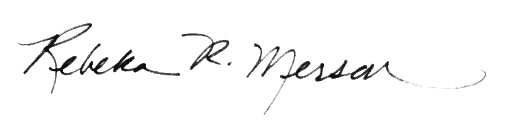 Rebeka R. Merson